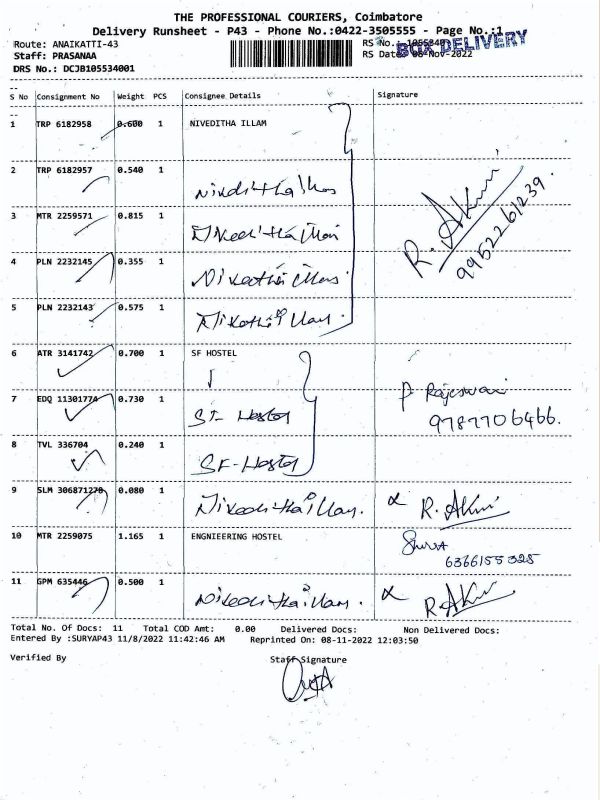 THE PROFESSIONAL COURIERS, Coimbatore
Delivery Runsheet - P43 - Phone No.:0422-3505555 - Page No.:1
Route: ANAIKATTI-43
RS No.:
BOX DELIVERY
Staff: PRASANAA
RS Date: 08-Nov-2022
DRS No.: DCJB105534001
S No Consignment No Weight PCS Consignee Details Signature
1 TRP 6182958 0.600 1 NIVEDITHA ILLAM
2 TRP 6182957 0.540 1 Niveditha
3 MTR 2259571 0.815 1 Niveditha
R. Akini
9952261239.
4 PLN 2232145 0.355 1 Niveditha
5 PLN 2232143 0.575 1 Niveditha Illam.
6 ATR 3141742 0.700 1 SF HOSTEL
7 EDQ 11301774 0.730 1 SF- Hostel
P Rajeswari
9787706466.
8 TVL 336704 0.240 1 SF-Hostel
9 SLM 306871270 0.080 1 Niveditha Illam. R. Akini
10 MTR 2259075 1.165 1 ENGNIEERING HOSTEL
6366155325
11 GPM 635446 0.500 1 Niveditha Illam. R. Akini
Total No. Of Docs: 11 Total COD Amt: 0.00 Delivered Docs: Non Delivered Docs:
Entered By :SURYAP43 11/8/2022 11:42:46 AM Reprinted On: 08-11-2022 12:03:50
Verified By Staff Signature